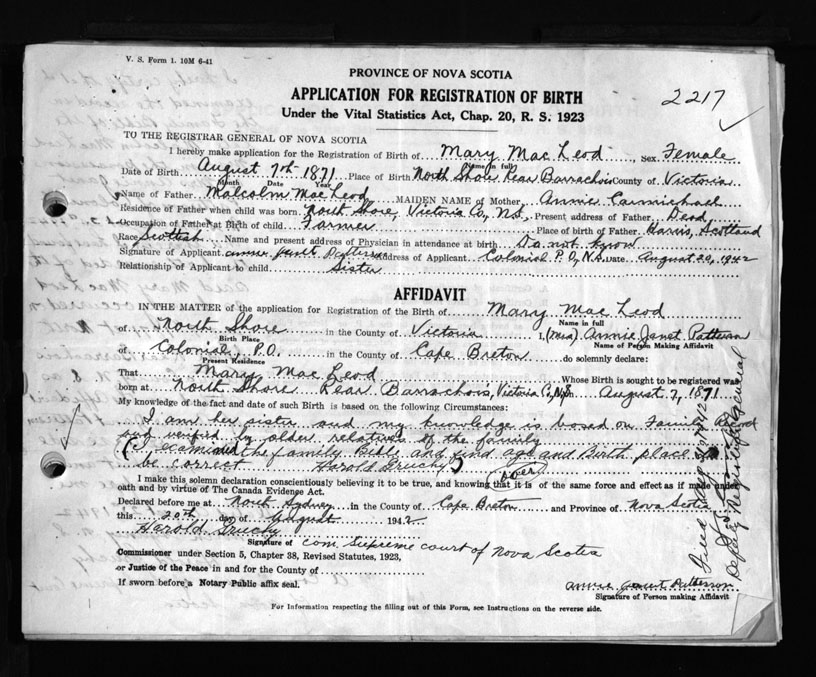 V. S. Form 1. 10M 6-41
PROVINCE OF NOVA SCOTIA
APPLICATION FOR REGISTRATION OF BIRTH
2217
Under the Vital Statistics Act, Chap. 20, R. S. 1923
TO THE REGISTRAR GENERAL OF NOVA SCOTIA
I hereby make application for the Registration of Birth of Mary Mac Leod, Sex Female
Name in full
Date of Birth August 7th 1871 Place of Birth North Shore Rear Barrachois County of Victoria
Month Date Year
Name of Father Malcolm Mac Leod MAIDEN NAME of Mother, Annie Carmichael
Residence of Father when child was born North Shore, Victoria Co, N.S. Present address of Father Dead
Occupation of Father at Birth of child Farmer Place of birth of Father Harris, Scotland
Race Scottish Name and present address of Physician in attendance at birth Do not know
Signature of Applicant Annie Janet Patterson Address of Applicant Colonial P.O, N.S. Date August 20, 1942
Relationship of Applicant to child Sister
AFFIDAVIT
IN THE MATTER of the application for Registration of the Birth of Mary Mac Leod
Name in full
of North Shore in the County of Victoria I, (Mrs) Annie Janet Patterson
Birth Place Name of Person Making Affidavit
of Colonial P.O. in the County of Cape Breton do solemnly declare:
Present Residence
That Mary Mac Leod Whose Birth is sought to be registered was
born at North Shore Rear Barrachois, Victoria Co, N.S. August 7, 1871
My knowledge of the fact and date of such Birth is based on the following Circumstances:
I am her sister and my knowledge is based on Family Record
and verified by older relatives of the family
(I examined the family Bible and find age and Birth place to
be correct Harold Gruchy)
over
I make this solemn declaration conscientiously believing it to be true, and knowing that it is of the same force and effect as if made under
oath and by virtue of The Canada Evidence Act.
Declared before me at North Sydney in the County of Cape Breton and Province of Nova Scotia
this 20th day of August 1942
Harold Gruchy
Signature of Com Supreme Court of Nova Scotia
Commissioner under Section 5, Chapter 38, Revised Statutes, 1923,
or Justice of the Peace in and for the County of
If sworn before a Notary Public affix seal.
Annie Janet Patterson
Signature of Person making Affidavit
For Information respecting the filling out of this Form, see Instructions on the reverse side.
Deputy Registrar General